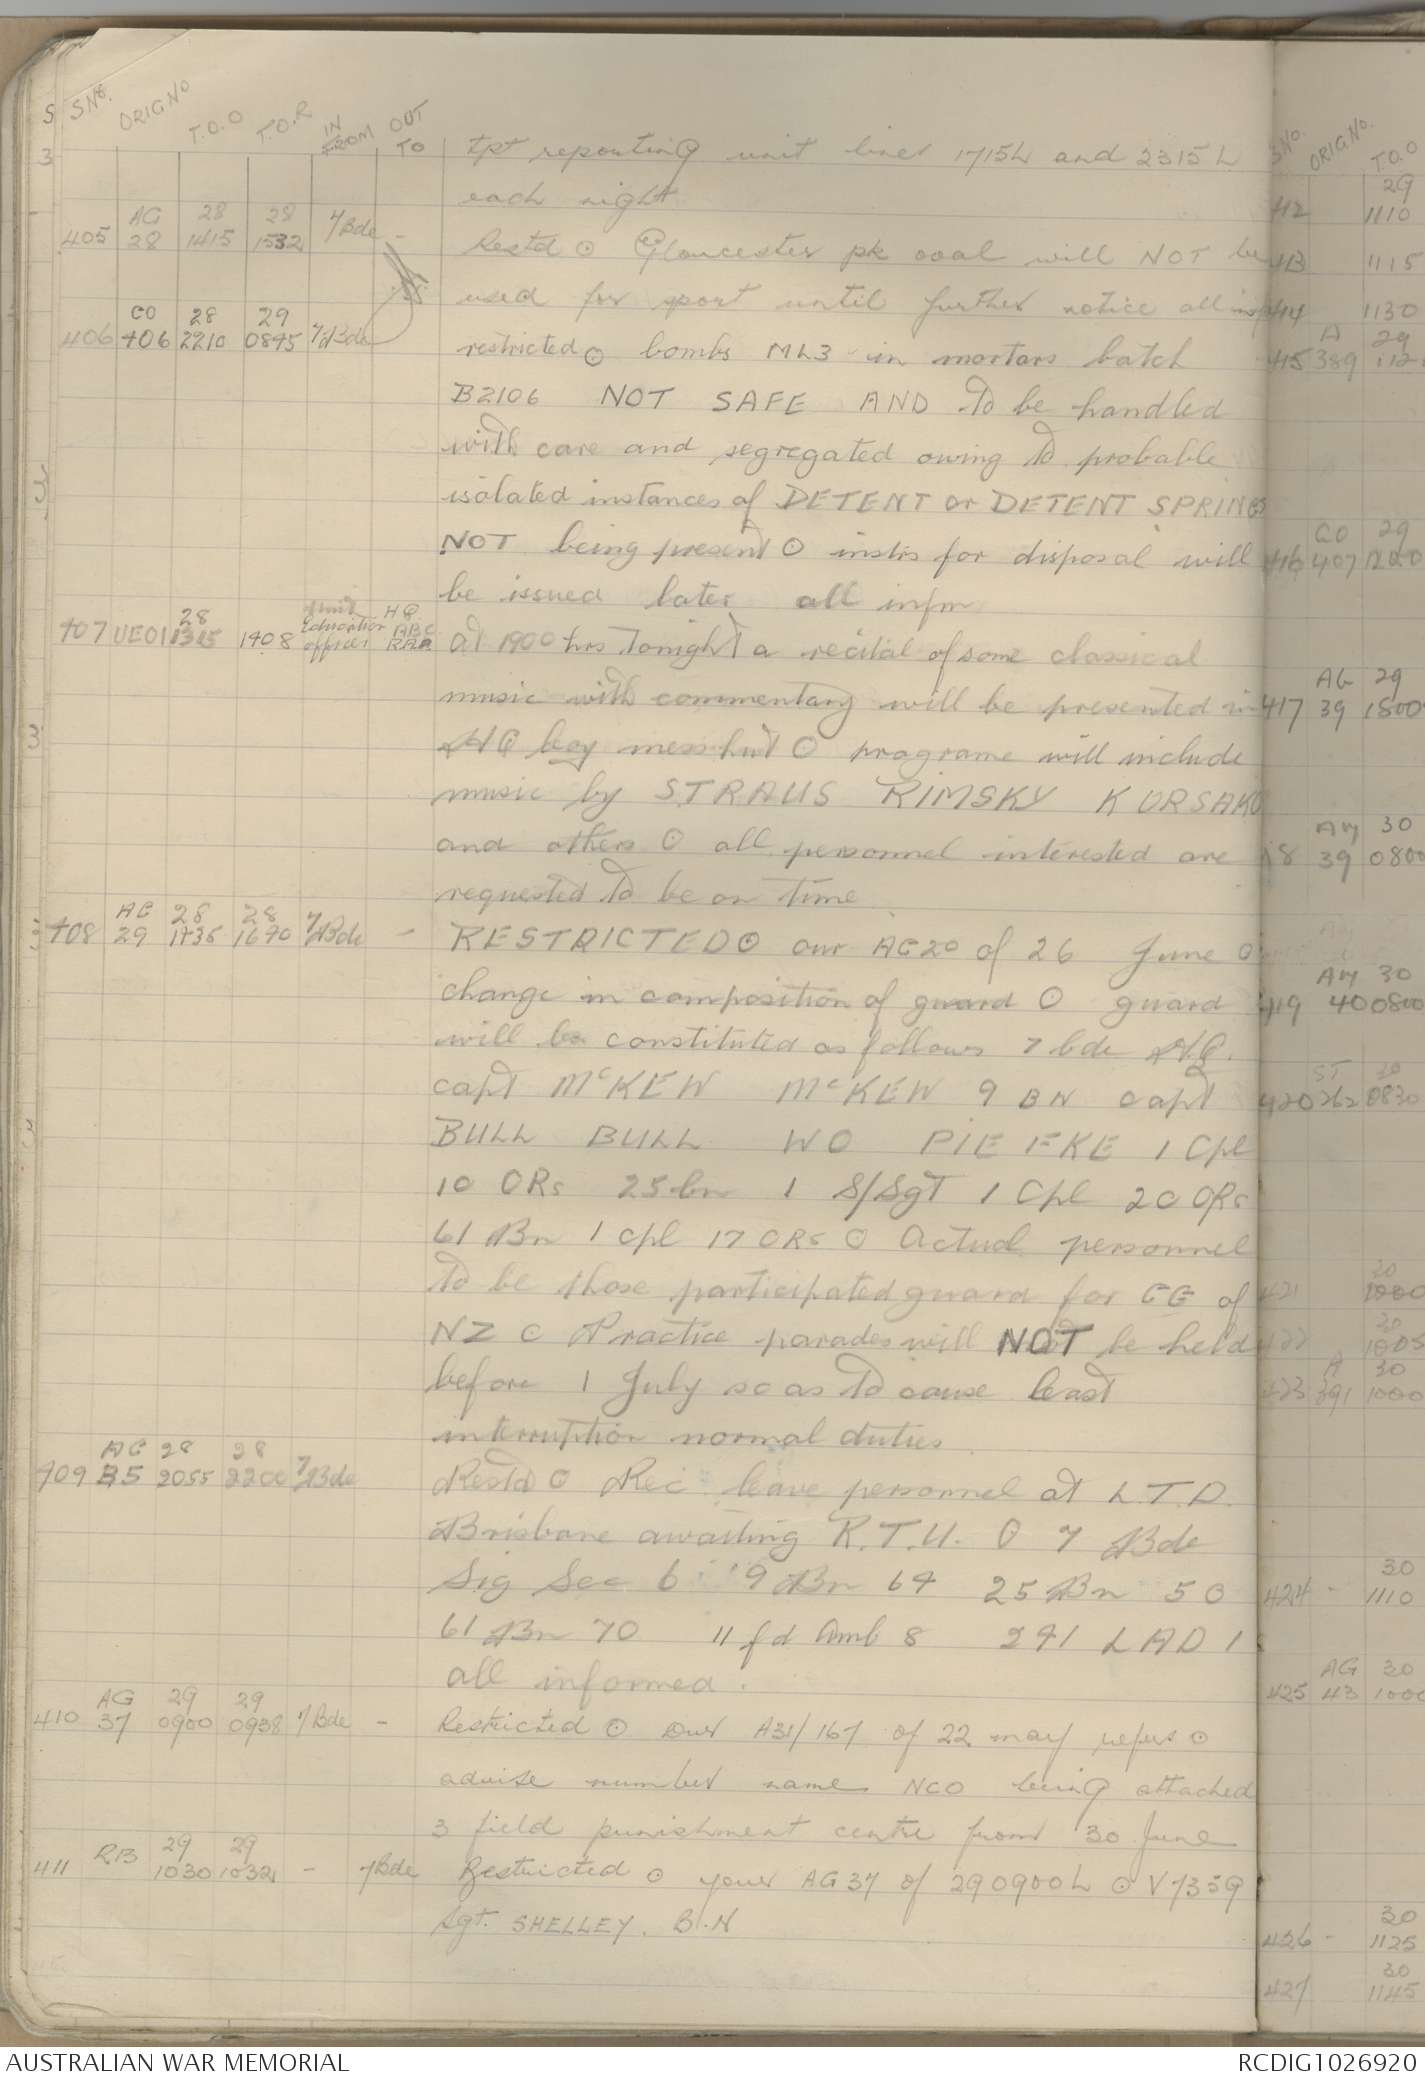 S SNo. ORIG No T.O.O T.O.R IN FROM OUT TO
tpt reporting unit lines 1715L and 2315L
each night
405 AG 28 28 1415 28 1532 7 Bde -
Restd ⊙ Gloucester pk oval will NOT be
used for sport until further notice all
406 CO 406 28 2210 29 0845 7 Bde
restricted ⊙ bombs ML3 in mortars batch
B2106 NOT SAFE AND to be handled
with care and segregated owing to probable
isolated instances of DETENT or DETENT SPRINGS
NOT being present ⊙ instrs for disposal will
be issued later all infm
407 UEO1 28 1408 Education officer HQ
At 1900 hrs tonight a recital of some classical
music with commentary will be presented in
HQ coy mess hut ⊙ programe will include
music by STRAUS RIMSKY KORSAKO
and others ⊙ all personnel interested are
requested to be on time
408 AG 29 28 1435 28 1640 7 Bde -
RESTRICTED ⊙ our AG20 of 26 June ⊙
change in composition of guard ⊙ guard
will be constituted as follows 7 bde HQ.
capt McKEW McKEW 9 BN capt
BULL BULL WO PIEFKE 1 Cpl
10 ORs 25 bn 1 S/Sgt 1 Cpl 20 ORs
61 Bn 1 cpl 17 ORs ⊙ Actual personnel
to be those participated guard for GG of
NZ ⊙ Practice parades will NOT be held
before 1 July so as to cause least
interruption normal duties
409 AG 35 28 2055 28 2200 7 Bde
Restd ⊙ Rec leave personnel at L.T.D.
Brisbane awaiting R.T.U. ⊙ 7 Bde
Sig Sec 6 9 Bn 64 25 Bn 50
61 Bn 70 11 fd Amb 8 241 LAD 1
all informed.
410 AG 37 29 0900 29 0938 7 Bde -
Restricted ⊙ Our A31/167 of 22 may refers ⊙
advise number name NCO being attached
3 field punishment centre from 30 June
411 RB 29 1030 29 1032 - 7 Bde
Restricted ⊙ your AG37 of 290900L ⊙ V7359
Sgt. SHELLEY. B.N
S No. ORIG. No. T.O.O
412 29 1110
413 1115
414 1130
415 A 389 29
416 CO 407 29 1220
417 AG 39 29 1800
39 30 0800
419 40 30 0800
420 ST 262 30 0830
421 30 1000
422 30 1005
423 A 391 30 1000
424 - 30 1110
425 AG 43 30 1000
426 - 30 1125
427 30 1145
AUSTRALIAN WAR MEMORIAL
RCDIG1026920